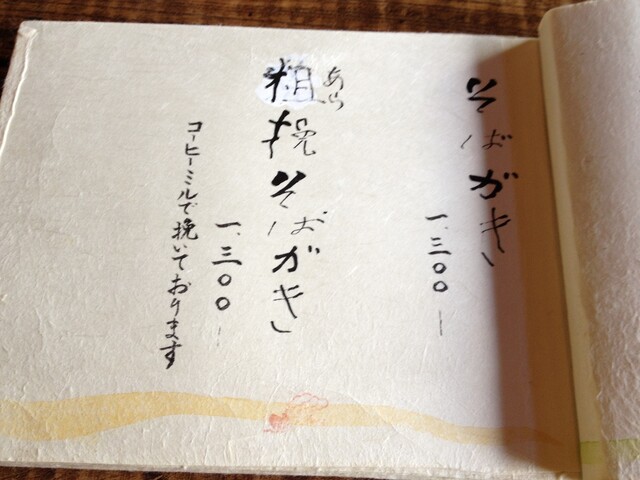 そばがき
一、三〇〇
あら
粗挽そばがき
一、三〇〇
コーヒーミルで挽いております